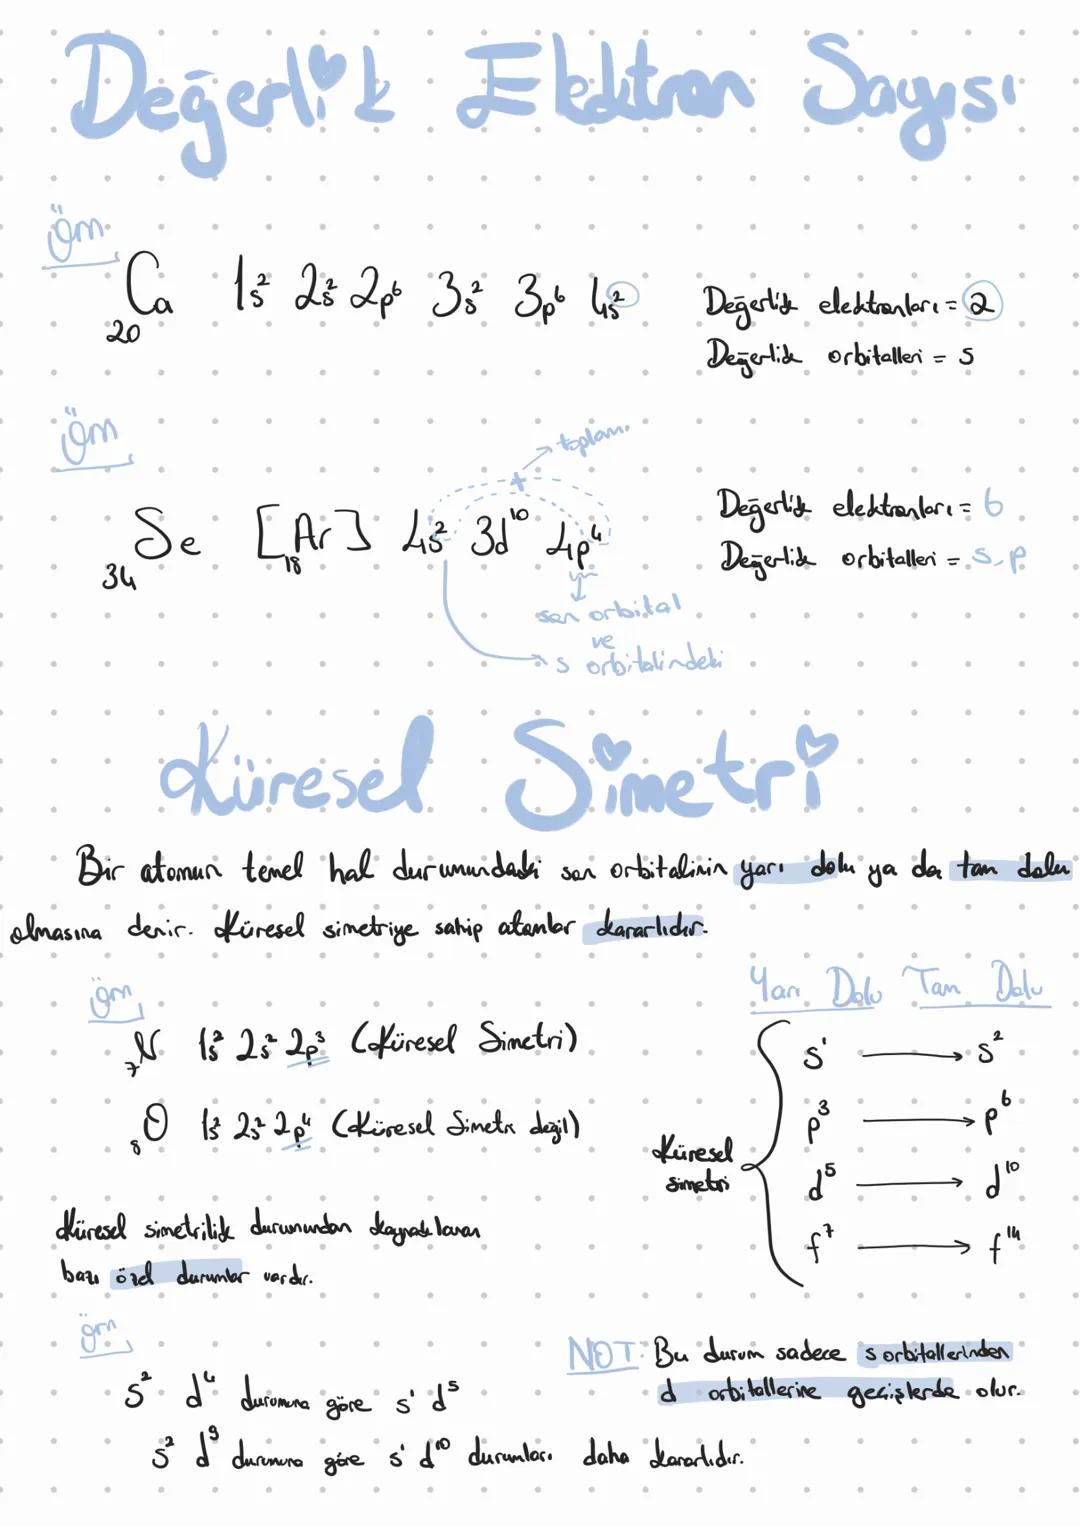 Değerlik Elektron Sayısı
Örn
₂₀Ca 1s² 2s² 2p⁶ 3s² 3p⁶ 4s²
Değerlik elektronları = 2
Değerlik orbitalleri = s
Örn
toplamı
+
₃₄Se [₁₈Ar] 4s² 3d¹⁰ 4p⁴
Değerlik elektronları = 6
Değerlik orbitalleri = s, p
son orbital
ve
s orbitalindeki
Küresel Simetri
Bir atomun temel hal durumundaki son orbitalinin yarı dolu ya da tam dolu
olmasına denir. Küresel simetriye sahip atomlar kararlıdır.
Örn
₇N 1s² 2s² 2p³ (Küresel Simetri)
₈O 1s² 2s² 2p⁴ (Küresel Simetri değil)
Yarı Dolu Tam Dolu
Küresel simetri
s¹ → s²
p³ → p⁶
d⁵ → d¹⁰
f⁷ → f¹⁴
Küresel simetrilik durumundan kaynaklanan
bazı özel durumlar vardır.
örn
s² d⁴ durumuna göre s¹ d⁵
s² d⁹ durumuna göre s¹ d¹⁰ durumları daha kararlıdır.
NOT: Bu durum sadece s orbitallerinden
d orbitallerine geçişlerde olur.